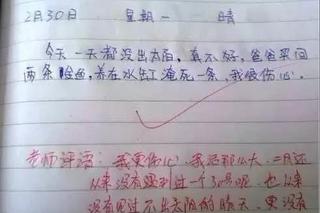 2月30日 星期一 晴
今天一天都没出太阳,真不好,爸爸买回
两条鱼,养在水缸淹死一条,我很伤心.
老师评语:我更伤心,我活那么大,二月还
从来没有遇到过一个30号呢,也从来
没有见过不出太阳的晴天,更没有